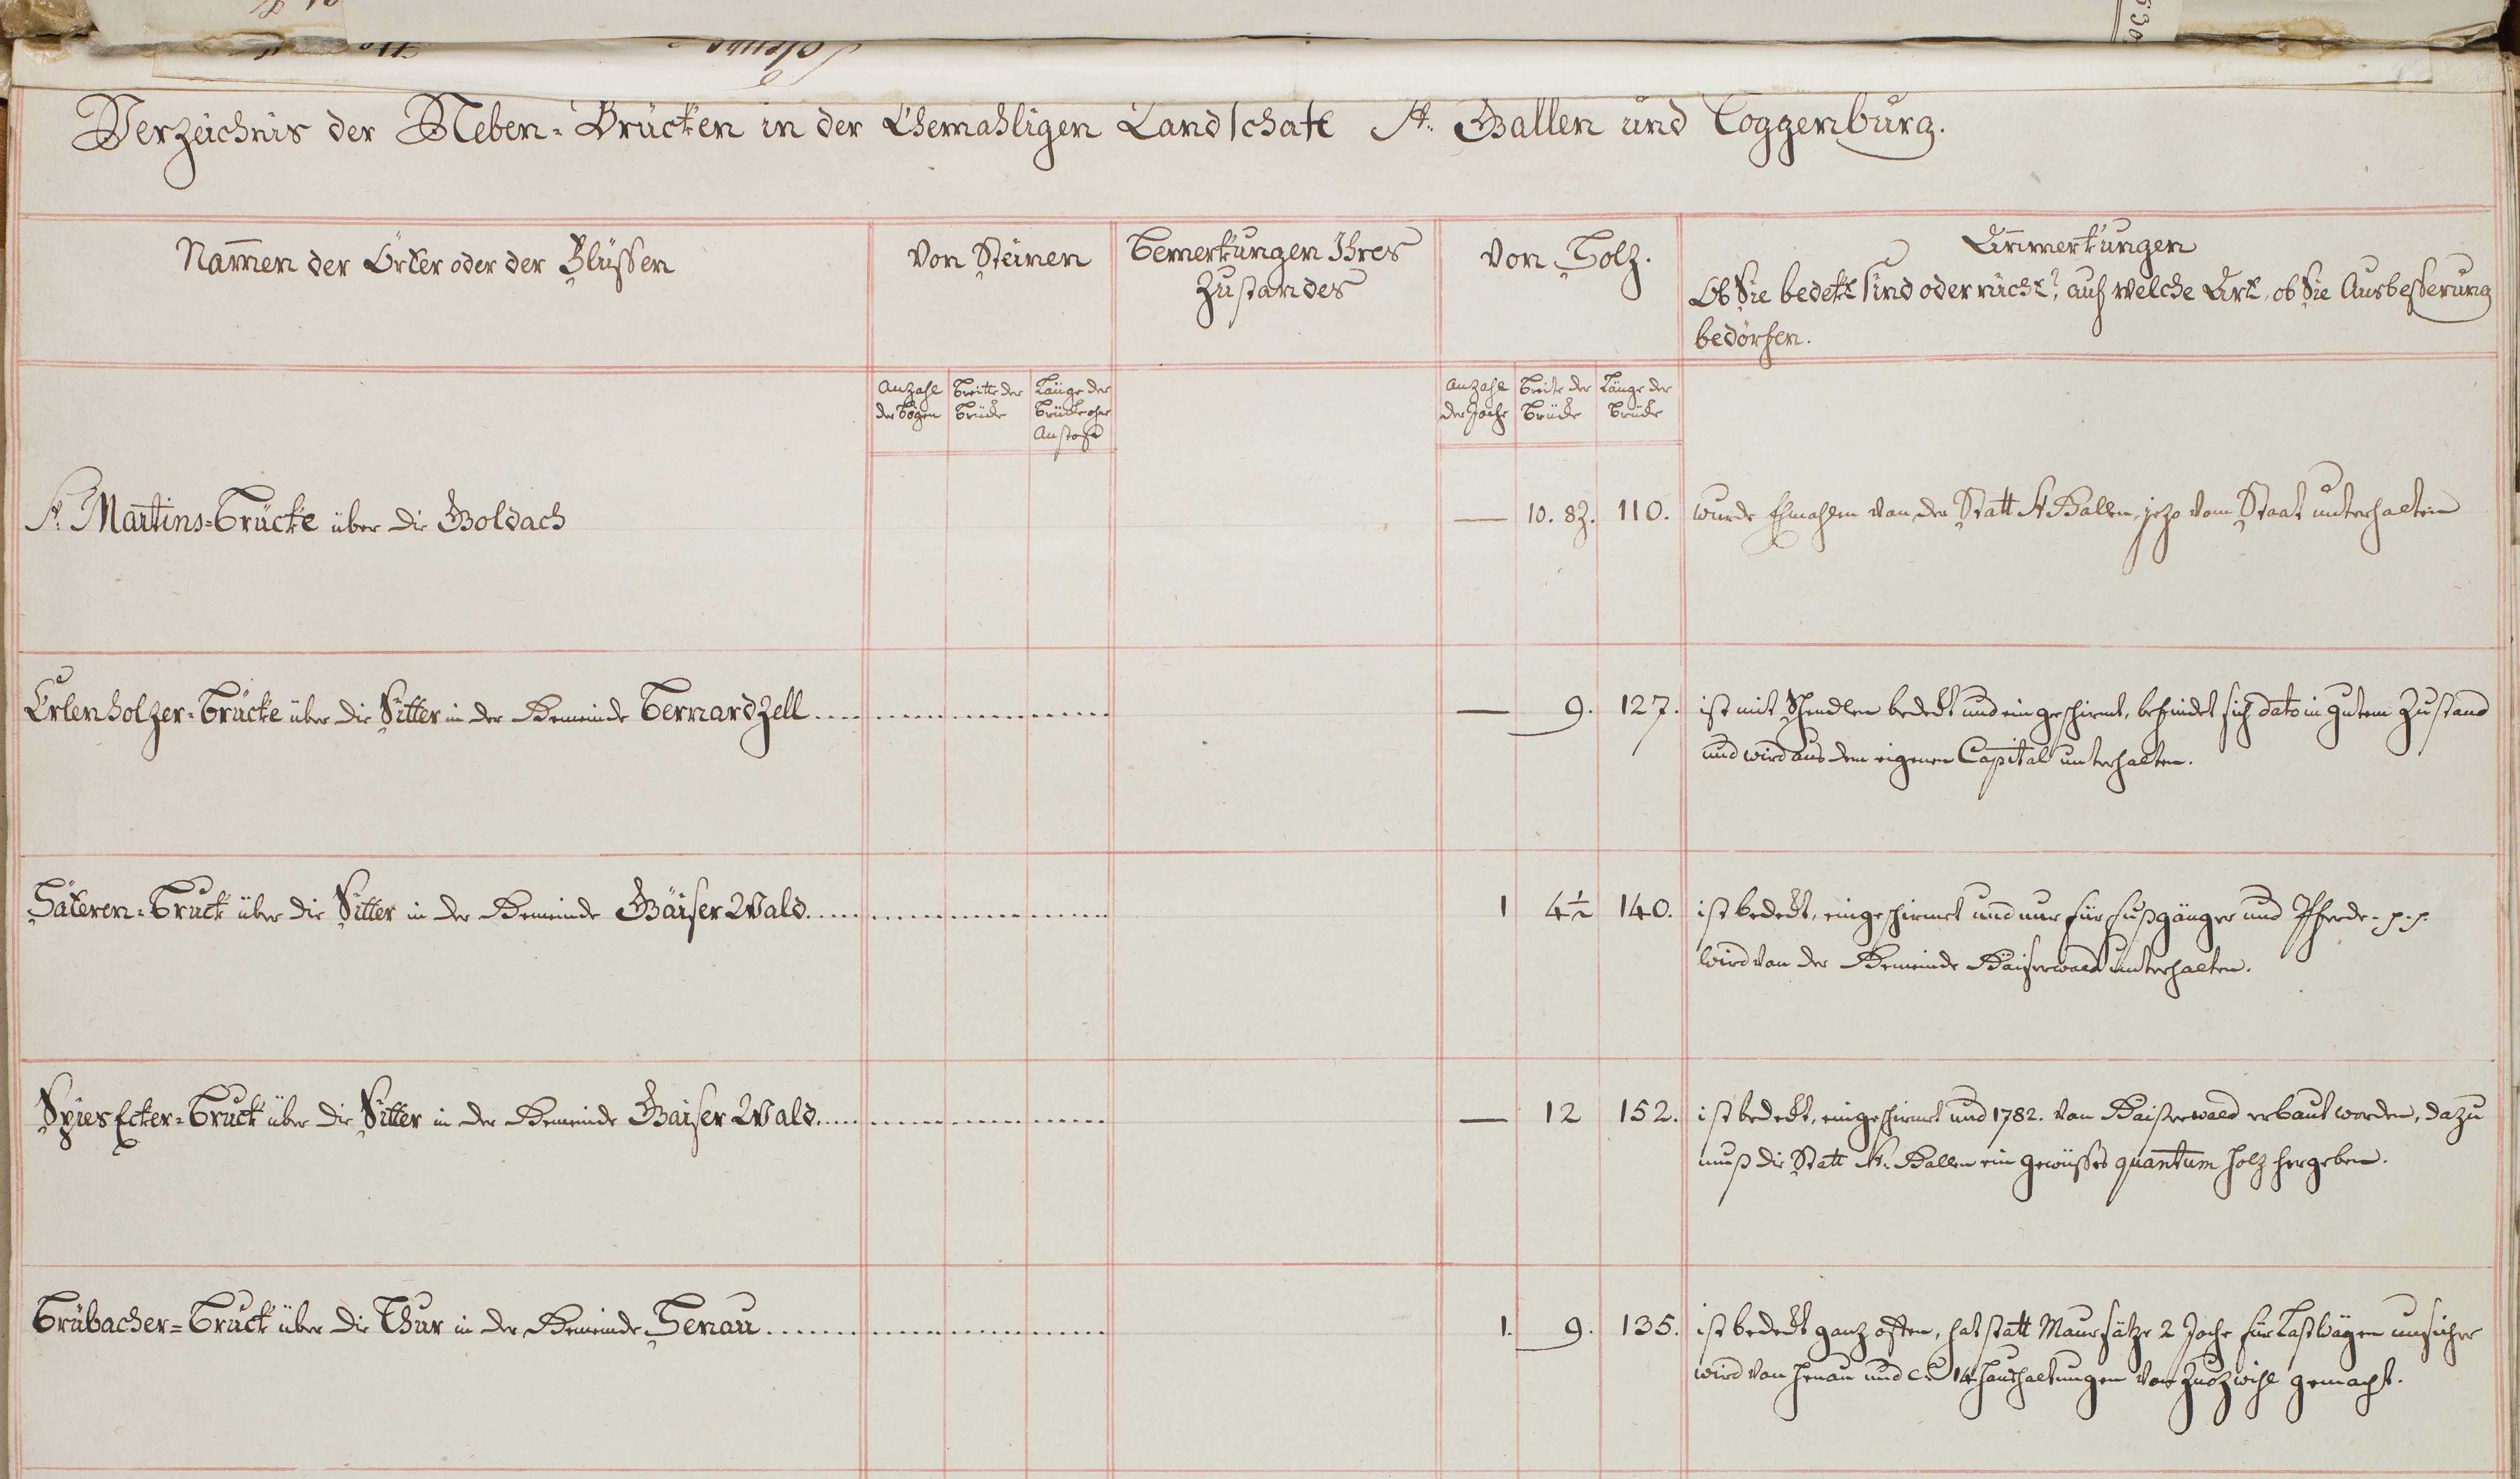 Verzeichnis der Neben-Brücken in der Ehemahligen Landschaft St. Gallen und Toggenburg.
Nam̄en der Örter oder der Flüssen
Von Steinen
Bemerkungen Ihres
Zustandes
Von Holz.
Anmerkungen
Ob Sie bedekt sind oder nicht?, auf welche Art, ob Sie Ausbesserung
bedörfen.
Anzahl der Bögen
Breitte der Brücke
Länge der Brücke ohne Anstoße
Anzahl der Joche
Breite der Brücke
Länge der Brücke
St. Martins-Brücke über die Goldach — 10. 8z. 110. wurde Ehmahlen von der Statt St Gallen, jezo vom Staat unterhalten
Erlenholzer-Brücke über die Sitter in der Gemeinde Bernardzell — 9. 127. ist mit Schindlen bedekt und eingeschirmt, befindet sich dato in gutem Zustand
und wird aus dem eigenen Capital unterhalten.
Häteren-Bruck über die Sitter in der Gemeinde Gäiser Wald 1 4½ 140. ist bedekt, eingeschirmet und nur für fußgänger und Pferde. p. p.
wird von der Gemeinde Gaiserwald unterhalten.
SpiesEcker-Bruck über die Sitter in der Gemeinde Gaiser Wald — 12 152. ist bedekt, eingeschirmt und 1782. von Gaiserwald erbaut worden, dazu
muß die Statt St. Gallen ein gewüsses quantum holz hergeben.
Brübacher-Bruck über die Thur in der Gemeinde Henau 1. 9. 135. ist bedekt ganz offen, hat statt Maursätze 2 Joche für Lastwägen unsicher
wird von Henau und ca 14 Haushaltungen von Zuozwihl gemacht.